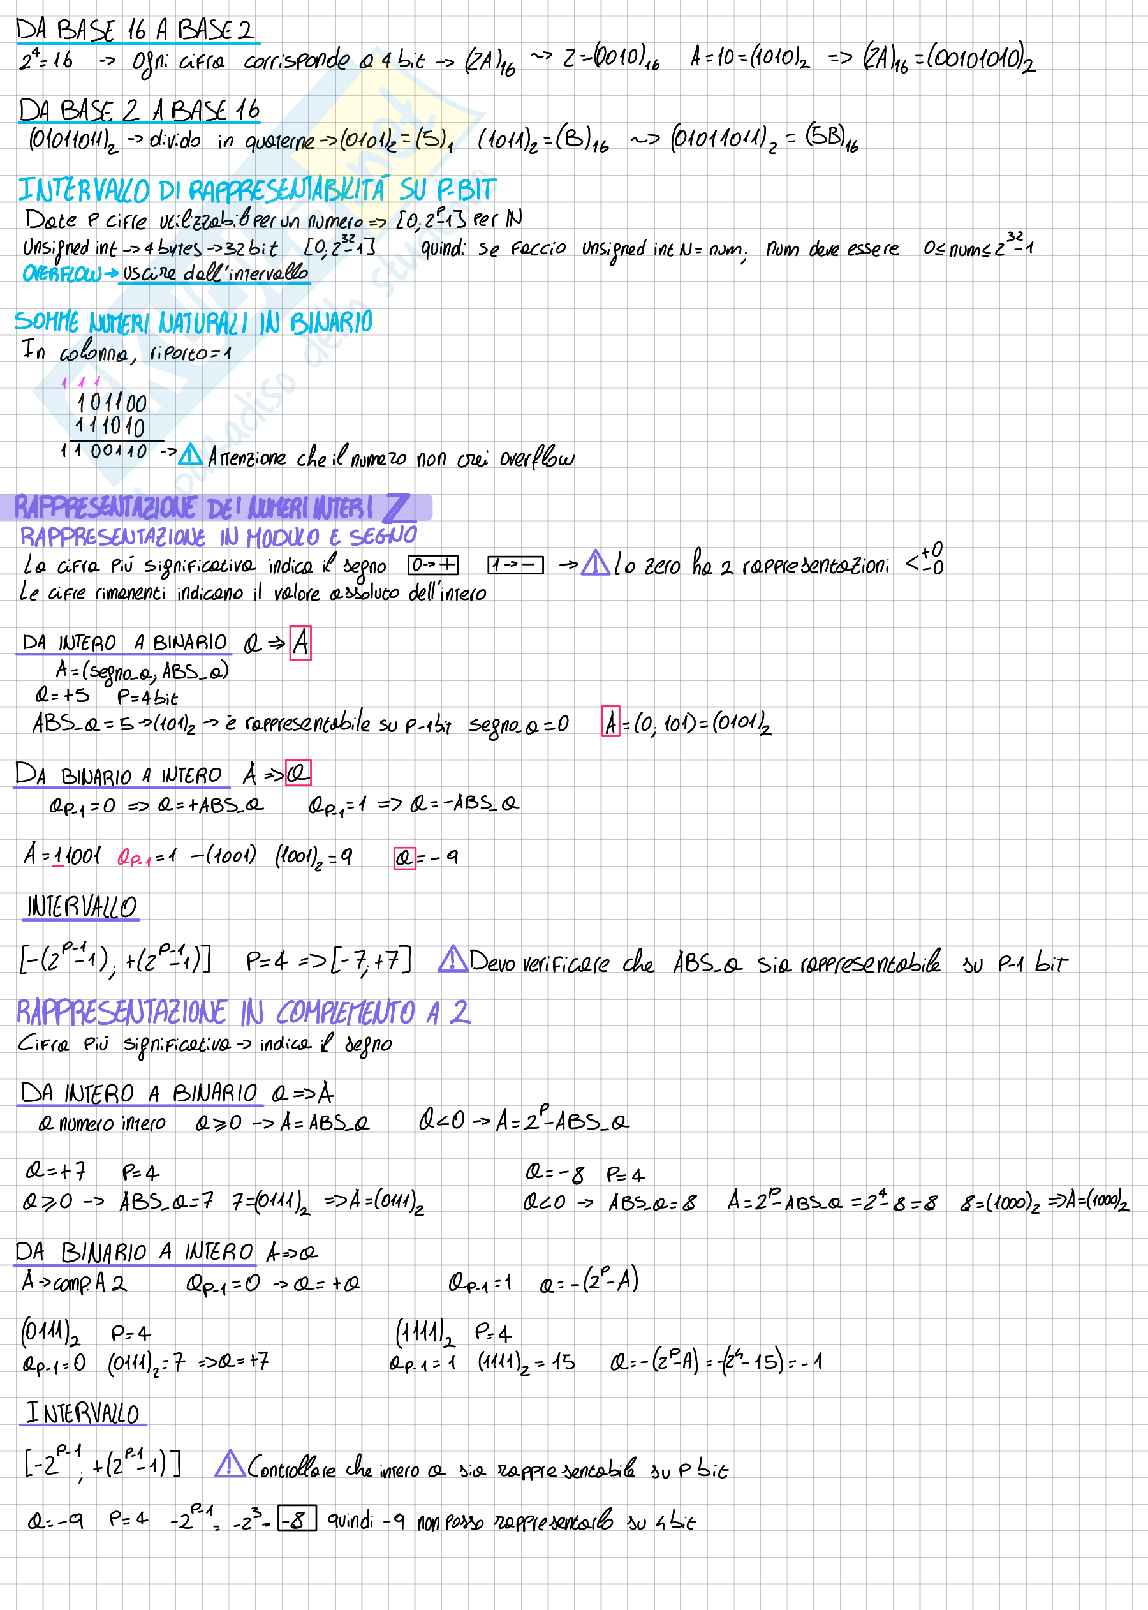 DA BASE 16 A BASE 2
2⁴=16 → Ogni cifra corrisponde a 4 bit → (2A)₁₆ ~> 2=(0010)₁₆ A=10=(1010)₂ => (2A)₁₆=(00101010)₂
DA BASE 2 A BASE 16
(01011011)₂ → divido in quaterne → (0101)₂=(5)₁ (1011)₂=(B)₁₆ ~> (01011011)₂ = (5B)₁₆
INTERVALLO DI RAPPRESENTABILITÁ SU P-BIT
Date P cifre utilizzabili per un numero => [0,2ᴾ-1] per N
Unsigned int → 4 bytes → 32 bit [0,2³²-1] quindi se faccio unsigned int N = num; num deve essere 0≤num≤2³²-1
OVERFLOW → uscire dall'intervallo
SOMME NUMERI NATURALI IN BINARIO
In colonna, riporto=1
1 1 1
101100
111010
1100110 → ⚠ Attenzione che il numero non crei overflow
RAPPRESENTAZIONE DEI NUMERI INTERI Z
RAPPRESENTAZIONE IN MODULO E SEGNO
La cifra piú significativa indica il segno 0→+ 1→- → ⚠ Lo zero ha 2 rappresentazioni < +0 -0
Le cifre rimanenti indicano il valore assoluto dell'intero
DA INTERO A BINARIO a => A
A=(segno_a, ABS_a)
a=+5 P=4bit
ABS_a=5→(101)₂ → è rappresentabile su P-1bit segno_a=0 A=(0,101)=(0101)₂
DA BINARIO A INTERO A => a
aₚ₋₁=0 => a=+ABS_a aₚ₋₁=1 => a=-ABS_a
A=11001 aₚ₋₁=1 -(1001) (1001)₂=9 a=-9
INTERVALLO
[-(2ᴾ⁻¹-1), +(2ᴾ⁻¹-1)] P=4 => [-7,+7] ⚠ Devo verificare che ABS_a sia rappresentabile su P-1 bit
RAPPRESENTAZIONE IN COMPLEMENTO A 2
Cifra piú significativa → indica il segno
DA INTERO A BINARIO a => A
a numero intero a≥0 → A=ABS_a a<0 → A=2ᴾ-ABS_a
a=+7 P=4 a=-8 P=4
a≥0 → ABS_a=7 7=(0111)₂ => A=(0111)₂ a<0 → ABS_a=8 A=2ᴾ-ABS_a=2⁴-8=8 8=(1000)₂ => A=(1000)₂
DA BINARIO A INTERO A => a
A→comp. A 2 aₚ₋₁=0 → a=+a aₚ₋₁=1 a=-(2ᴾ-A)
(0111)₂ P=4 (1111)₂ P=4
aₚ₋₁=0 (0111)₂=7 => a=+7 aₚ₋₁=1 (1111)₂=15 a=-(2ᴾ-A)=-(2⁴-15)=-1
INTERVALLO
[-2ᴾ⁻¹, +(2ᴾ⁻¹-1)] ⚠ Controllare che intero a sia rappresentabile su P bit
a=-9 P=4 -2ᴾ⁻¹=-2³=-8 quindi -9 non posso rappresentarlo su 4 bit